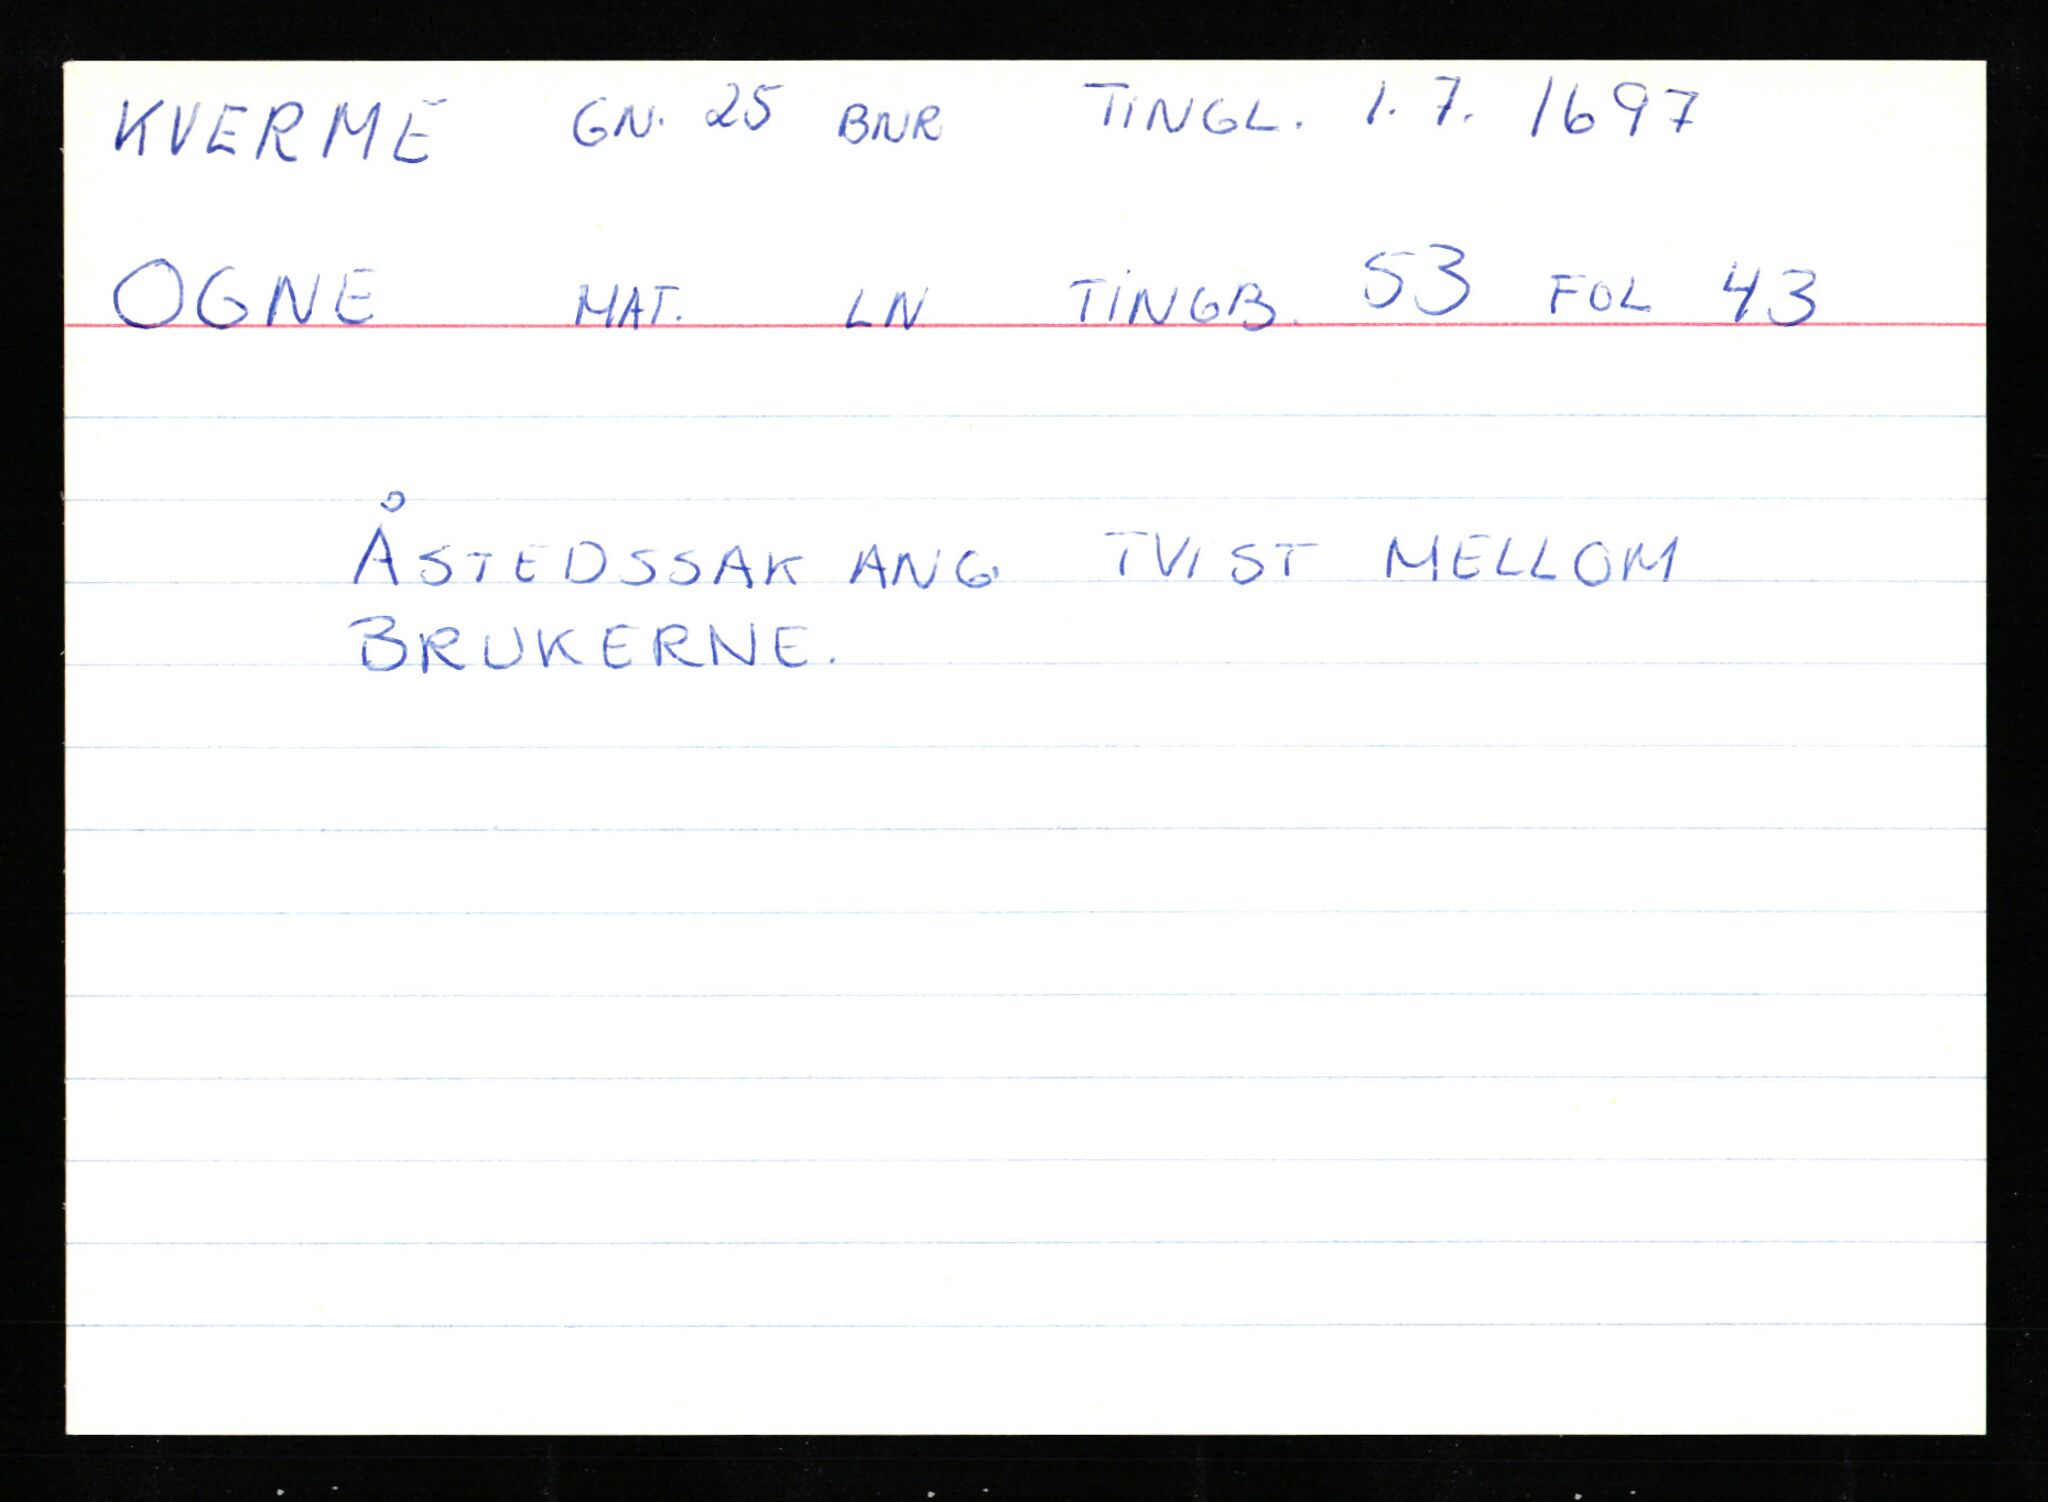 KVERME GN. 25 BNR TINGL. 1.7. 1697
OGNE MAT. LN TINGB. 53 FOL 43
ÅSTEDSSAK ANG. TVIST MELLOM
BRUKERNE.